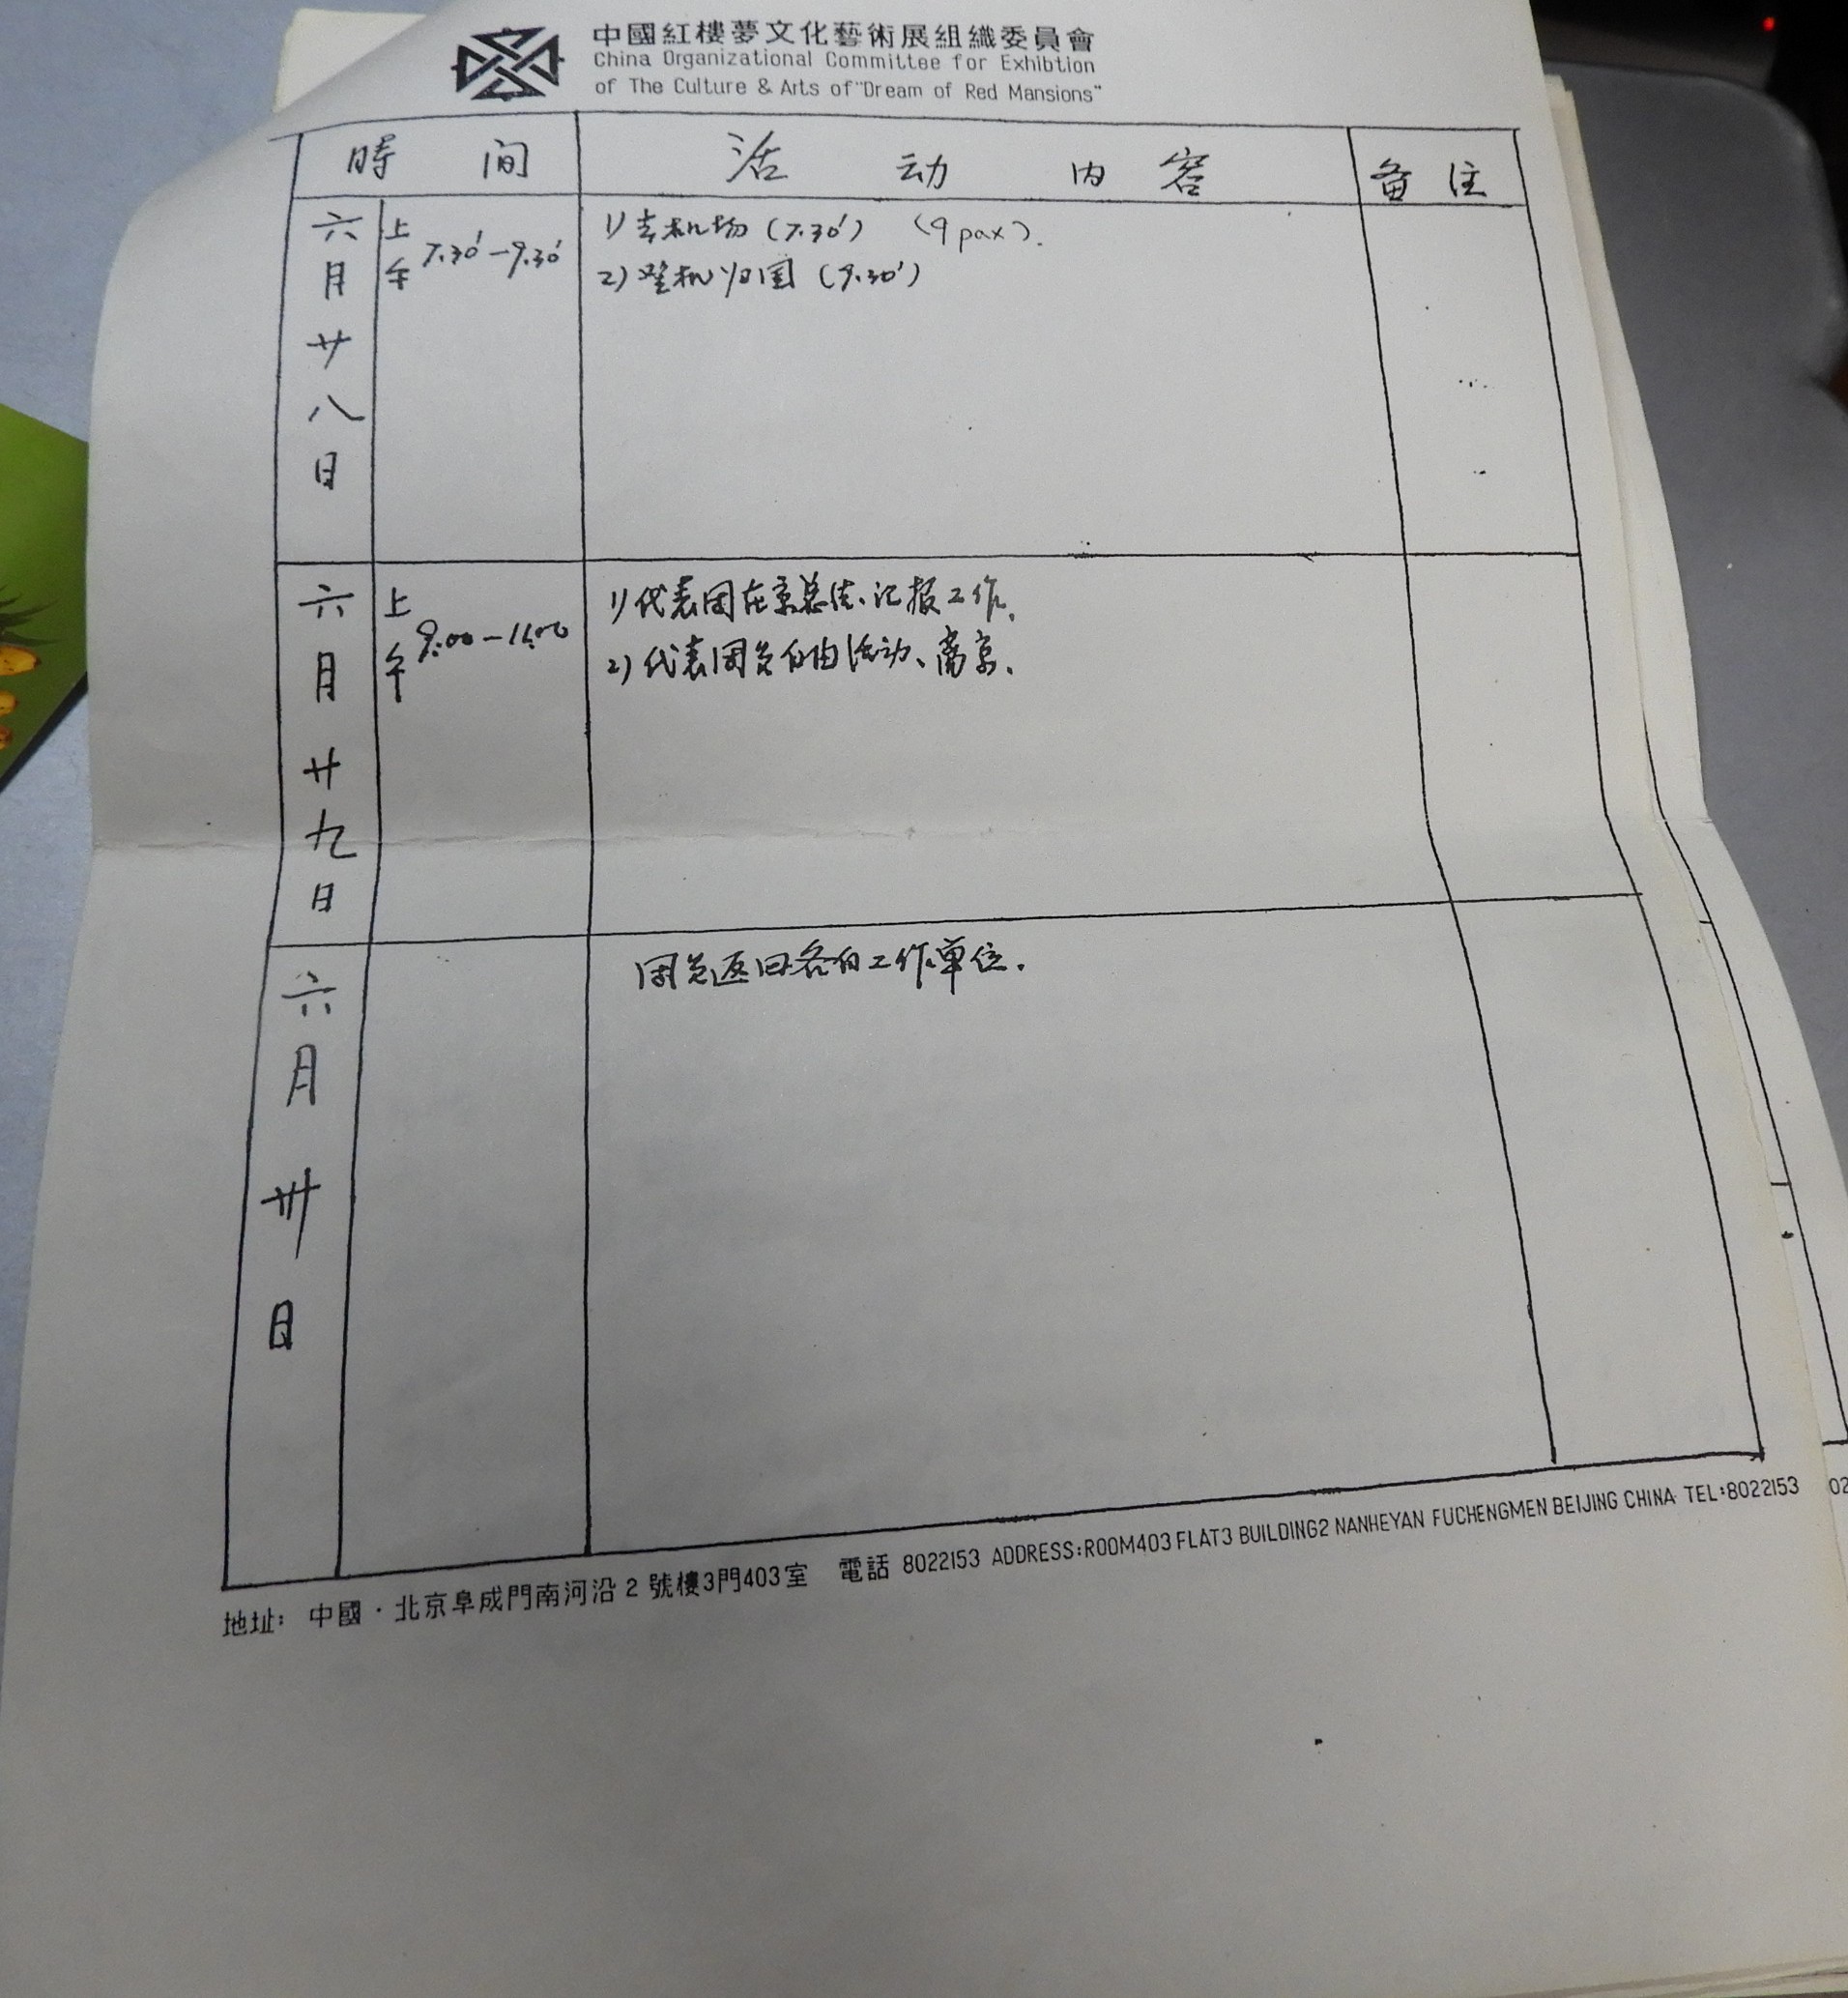 中國紅樓夢文化藝術展組織委員會
China Organizational Committee for Exhibtion
of The Culture & Arts of "Dream of Red Mansions"
時间 活动内容 备注
六月廿八日 上午 7.30′—9.30′
1) 去机场 (7.30′) (9 pax).
2) 登机归国 (9.30′)
六月廿九日 上午 9:00—11:00
1) 代表团在京总结、汇报工作.
2) 代表团员自由活动、离京.
六月卅日
团员返回各自工作单位.
地址: 中國·北京阜成門南河沿2號樓3門403室 電話 8022153 ADDRESS:ROOM403 FLAT3 BUILDING2 NANHEYAN FUCHENGMEN BEIJING CHINA TEL:8022153
02